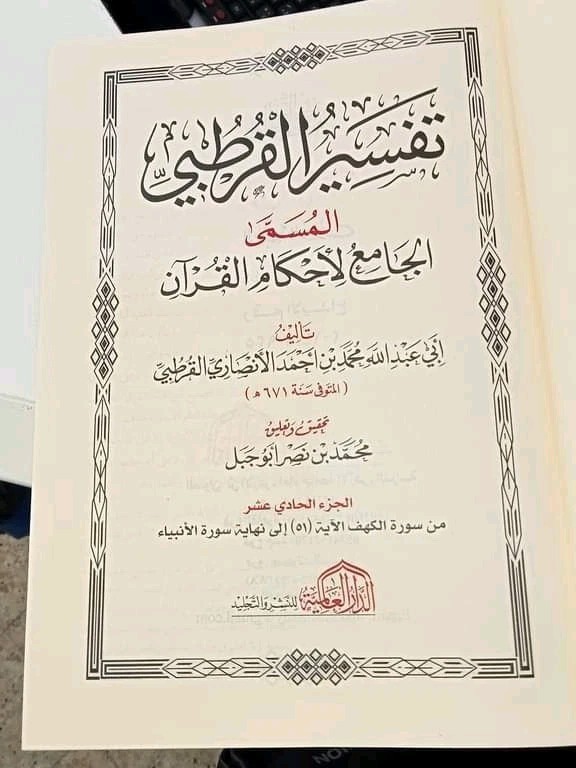 تَفسِيرُ القُرطُبيِّ
المُسَمَّى
الجَامِعُ لِأَحكَامِ القُرآنِ
تَأليفُ
أَبي عَبدِ اللَّه مُحَمَّدِ بنِ أَحمَدَ الأَنصَارِيِّ القُرطُبيِّ
(المتوفى سَنَة ٦٧١ هـ)
تحقيق وتعليق
محُمَّد بن نَصر أبو جَبَل
الجزء الحادي عشر
من سورة الكهف الآية (٥١) إلى نهاية سورة الأنبياء
الدَّارُ العَالَمِيَّةُ للنَّشرِ وَالتَّجليد